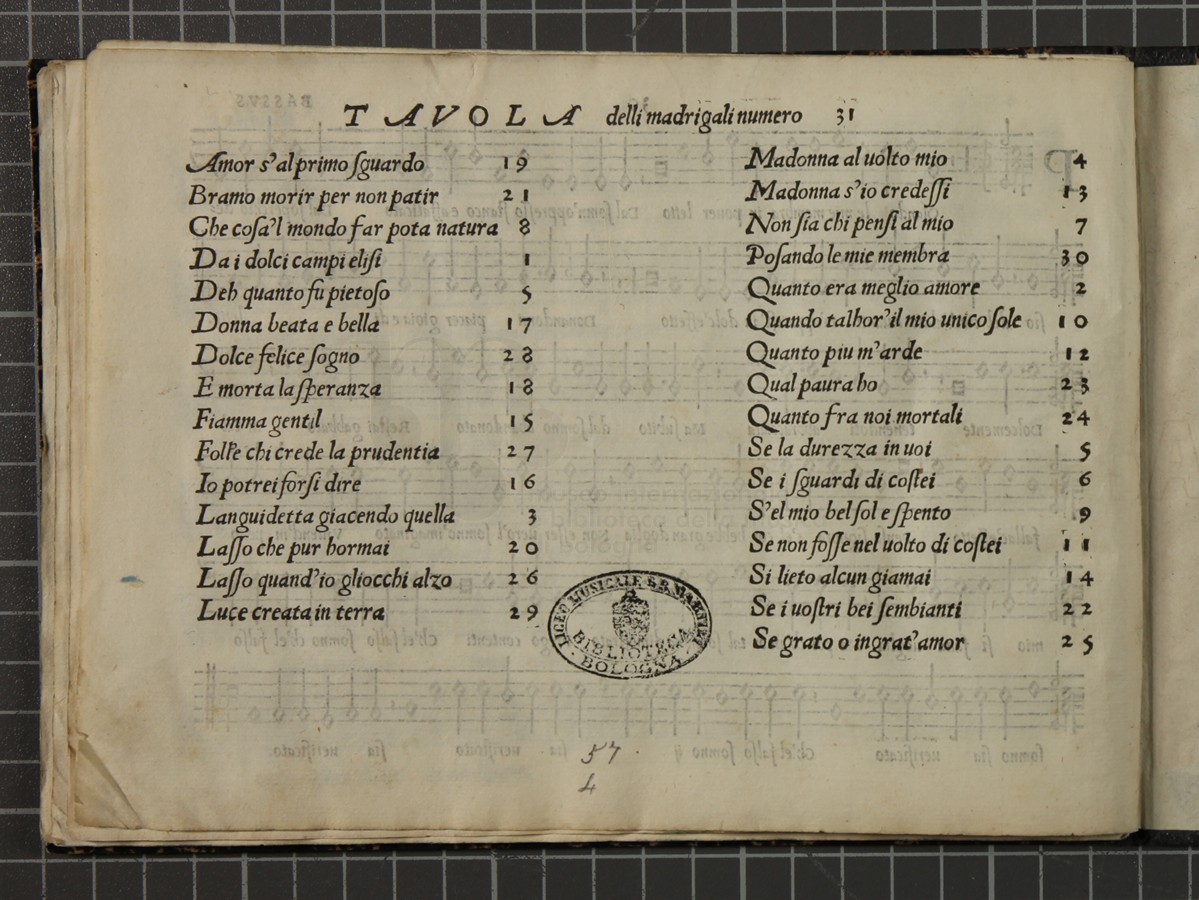 TAVOLA delli madrigali numero 31
Amor s'al primo ſguardo 19
Bramo morir per non patir 21
Che coſa'l mondo far pota natura 8
Da i dolci campi eliſi 1
Deh quanto fu pietoſo 5
Donna beata e bella 17
Dolce felice ſogno 28
E morta la ſperanza 18
Fiamma gentil 15
Foll'e chi crede la prudentia 27
Io potrei forſi dire 16
Languidetta giacendo quella 3
Laſſo che pur hormai 20
Laſſo quand'io gliocchi alzo 26
Luce creata in terra 29
Madonna al uolto mio 4
Madonna s'io credeſſi 13
Non ſia chi penſi al mio 7
Poſando le mie membra 30
Quanto era meglio amore 2
Quando talhor'il mio unico ſole 10
Quanto piu m'arde 12
Qual paura ho 23
Quanto fra noi mortali 24
Se la durezza in uoi 5
Se i ſguardi di coſtei 6
S'el mio bel ſol e ſpento 9
Se non foſſe nel uolto di coſtei 11
Si lieto alcun giamai 14
Se i uoſtri bei ſembianti 22
Se grato o ingrat'amor 25
LICEO MUSICALE G.B. MARTINI
BIBLIOTECA
BOLOGNA
57
4